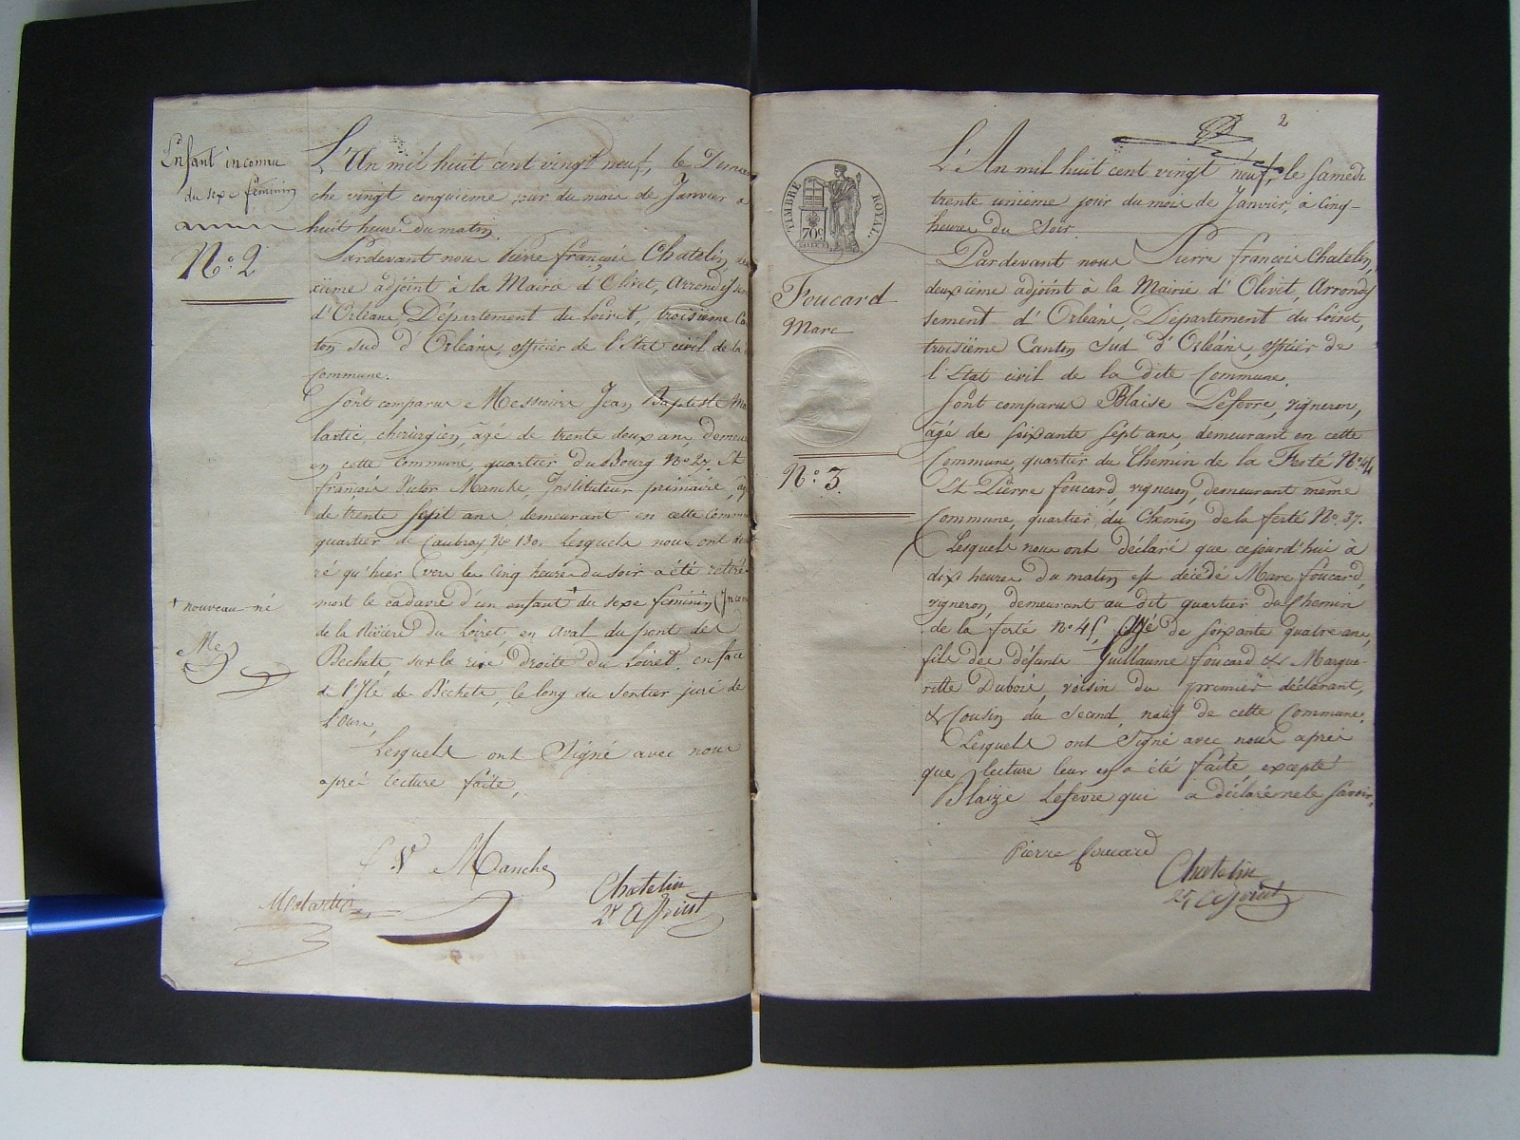 Enfant inconnu
du sexe féminin
N°. 2
L'An mil huit cent vingt neuf, le Diman
che vingt cinquième jour du mois de Janvier a
huit heures du matin.
Pardevant nous Pierre françois Chatelin, deu
xième adjoint à la Mairie d'Olivet, Arrondissem
d'Orléans, Département du Loiret, troisième Ca
ton sud d'Orléans, officier de l'état civil de la
Commune.
Sont comparus Messieurs Jean Baptiste Ma
lartic, chirurgien, âgé de trente deux ans, demeu
en cette Commune, quartier du Bourg N° 27. Et
françois Victor Manche, Instituteur primaire, âg
de trente sept ans, demeurant en cette Commu
quartier de Caubray N° 130. Lesquels nous ont
ré qu'hier vers les cinq heures du soir a été retiré
mort le cadavre d'un enfant + du sexe féminin (Incon
de la Rivière du Loiret, en aval du pont de
Bechets sur la rive droite du Loiret, en face
de l'Ile de Béchets, le long du sentier
+ nouveau-né
Lesquels ont Signé avec nous
après lecture faite.
f V Manche
Malartic
Chatelin
2e Adjoint
2
TIMBRE ROYAL
70c
Foucard
Marc
N°. 3.
L'An mil huit cent vingt neuf, le Samedi
trente unième jour du mois de Janvier, à Cinq
heures du Soir.
Pardevant nous Pierre françois Chatelin,
deuxième adjoint à la Mairie d'Olivet, Arrondis
sement d'Orléans, Département du Loiret,
troisième Canton Sud d'Orléans, officier de
l'Etat civil de la dite Commune.
Sont comparus Blaise Lefevre, vigneron,
âgé de soixante sept ans, demeurant en cette
Commune, quartier du Chemin de la Ferté N°
Et Pierre foucard, vigneron, demeurant même
Commune, quartier du Chemin de la ferté N° 37.
Lesquels nous ont déclaré que cejourd'hui à
dix heures du matin est décédé Marc foucard,
vigneron, demeurant au dit quartier du Chemin
de la ferté N° 45, Agé de soixante quatre ans,
fils des défunts Guillaume foucard & Margue-
ritte Dubois, voisin du premier déclarant,
& Cousin du second, natif de cette Commune.
Lesquels ont Signé avec nous après
que lecture leur en a été faite excepté
Blaize Lefevre qui a déclaré ne le savoir.
Pierre foucard
Chatelin
2e Adjoint